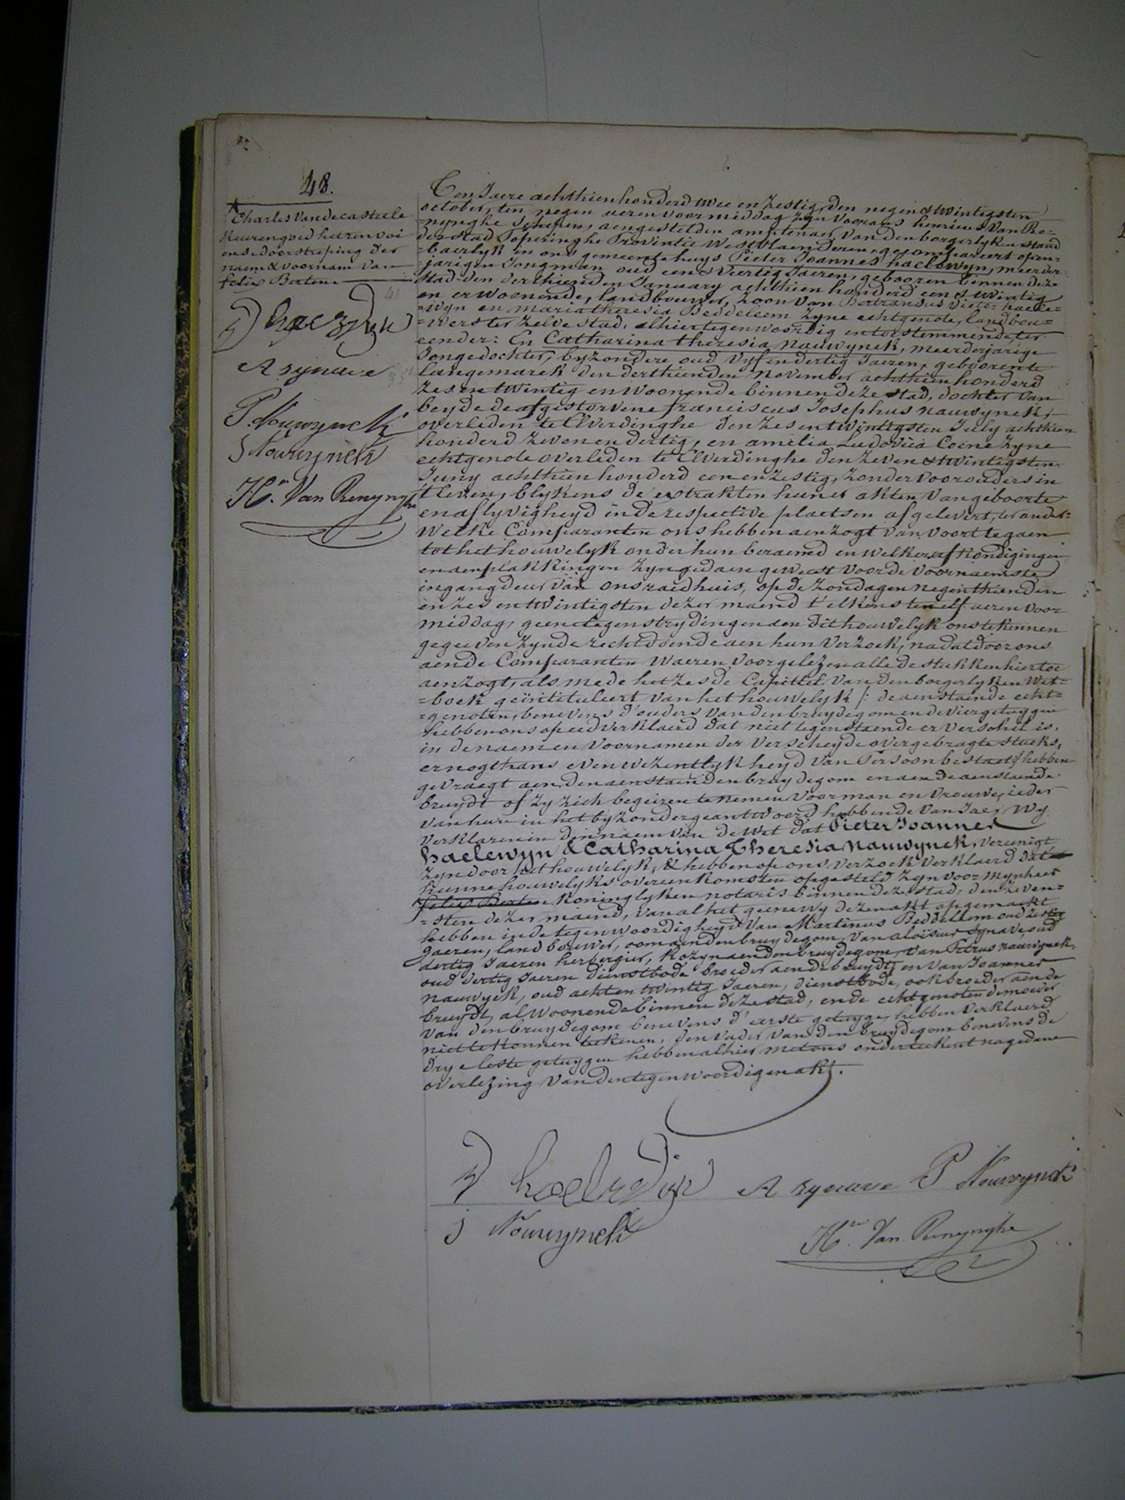 48.
Charles Vandecasteele
keurengoed het renvoi
ens. doorstreping der
naem & voornam van
felix Berten
A Synave
P. Nouwynck
J Nouwynck
Hri Van Renynghe
Ten Jaere achthienhonderd twee en zestig, den negen & twintigsten
october, ten negen ueren voormiddag, zyn voor ons henricus Van Re-
-nynghe schepen, aengestelden amptenaer van den borgerlyken stand
der stad Poperinghe Provintie West Vlaenderen, gecompareert open-
-baerlyk en ons gemeentehuys Pieter Joannes haelewyn, meerder-
jarigen Jongman oud een & veertig Jaeren, geboren binnen deze
stad den derthienden January achthien honderd een & twintig
en er woonende, landbouwer, zoon van Bertrandus Pieter haele-
-wyn en Maria theresia Beddeleem zyne echtgenote, landbou-
-wers ter zelve stad, alhier tegenwoordig en toestemmende ter
eender: En Catharina theresia Nauwynck, meerderjarige
Jongedochter, byzondere oud vyf en dertig Jaeren, geboren te
Langemarck den derthienden November achthien honderd
zes en twintig en woonende binnen deze stad, dochter van
beyde de afgestorvene franciscus Josephus nauwynck,
overleden te Elverdinghe den zes en twintigsten July achthien
honderd zeven en dertig, en amelia Ludovica Coene zyne
echtgenote overleden te Elverdinghe den zeven & twintigsten
Juny achthien honderd een en zestig, zonder voorouders in
't leven, blykens de extrakten hunner akten van geboorte
en aflyvigheyd in de respective plaetsen afgelevert, ter ander:
Welke Comparanten ons hebben aenzogt van voort te gaen
tot het houwelyk onder hun beraemd en welkers afkondigingen
en aenplakkingen zyn gedaen geweest voor de voornaemste
ingang deur van ons raedhuis, op de zondagen negenthienden
en zes en twintigsten dezer maend t' elkens ten elf ueren voor-
middag, geene tegenstrydingen aen dit houwelyk ons te kennen
gegeven zynde rechtdoende aen hun verzoek, na dat door ons
aen de Comparanten waeren voorgelezen alle de stukken hier toe
aenzogt, als mede het zesde Capittel van den borgerlyken Wet-
-boek geïntituleert van het houwelyk /: de aenstaende echt-
-genoten, benevens d'ouders van den bruydegom en de vier getuygen
hebben ons op eed verklaerd dat niet tegenstaende er verschil is
in de naem en voornamen der verscheyde overgebragte stuks,
er nogthans even wezentlykheyd van persoon bestaet :/ hebben
gevraegt aen den aenstaenden bruydegom en aen de aenstaende
bruydt of zy zich begeiren te nemen voor man en vrouwe, ieder
van hun in het byzonder geantwoord hebbende van Jae; Wy
verklaren in den naem van de wet dat Pieter Joannes
haelewyn & Catharina Theresia Nauwynck, vereenigt
zyn door het houwelyk, & hebben op ons verzoek verklaerd dat
hunne houwelyks overeenkomsten opgesteld zyn voor mynheer
felix Berten koninglyken notaris binnen deze stad, den zeven-
-sten dezer maend, van al het geene wy dezen akt opgemaekt
hebben in de tegenwoordigheyd van Martinus Beddeleem oud zestig
Jaeren, landbouwer, oom aen den bruydegom, van aloisius Synave oud
dertig Jaeren herbergier, kozyn aen den bruydegom, van Petrus nauwynck
oud dertig Jaeren dienstbode broeder aen de bruydt en van Joannes
nauwynck, oud acht en twintig Jaeren, dienstbode, ook broeder aen de
bruydt, al woonende binnen deze stad, en de echtgenoten de moeder
van den bruydegom benevens d' eerste getuyge, hebben verklaerd
niet te konnen teekenen, den vader van den bruydegom benevens de
dry leste getuygen hebben alhier met ons onderteekent na gedane
overlezing van den tegenwoordigen akt.
haelewijn A Synave P Nouwynck
J Nouwynck
Hri Van Renynghe